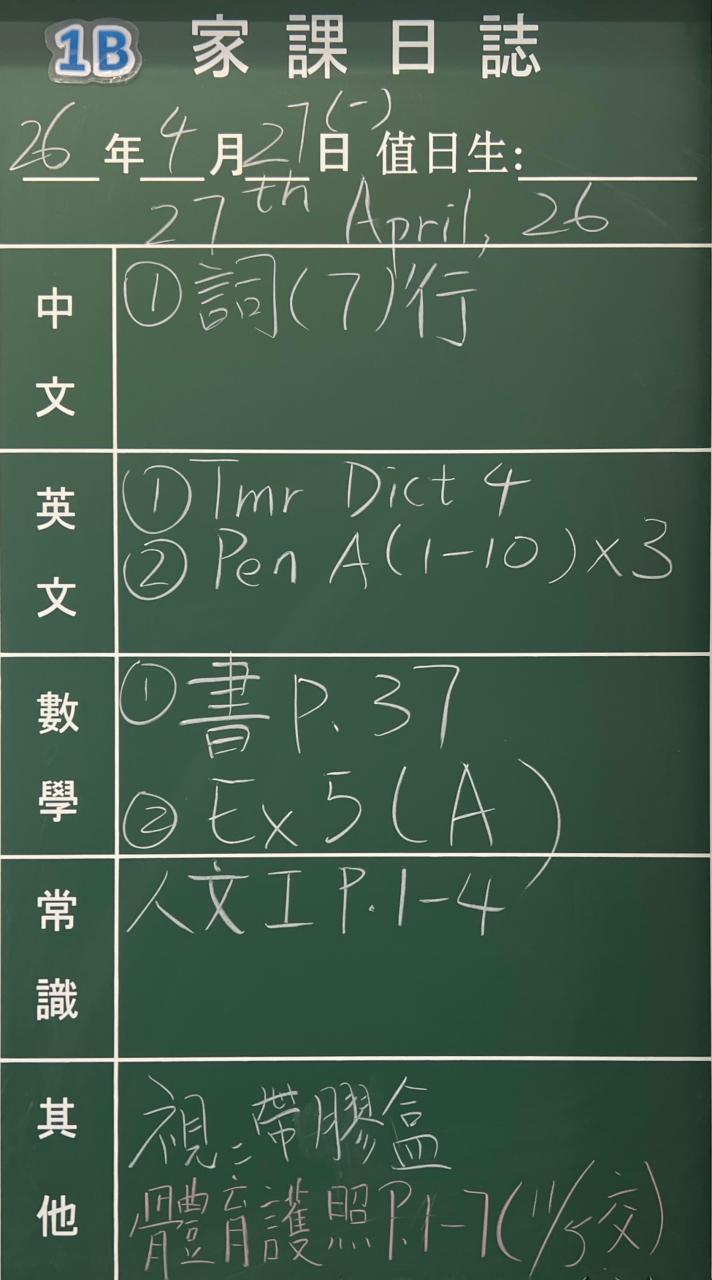 1B 家課日誌
26年4月27日(一) 值日生:
27th April, 26
中文
①詞(7)行
英文
①Tmr Dict 4
②Pen A(1-10)×3
數學
①書P.37
②Ex 5(A)
常識
人文工P.1-4
其他
視:帶膠盒
體育護照P.1-7(11/5交)